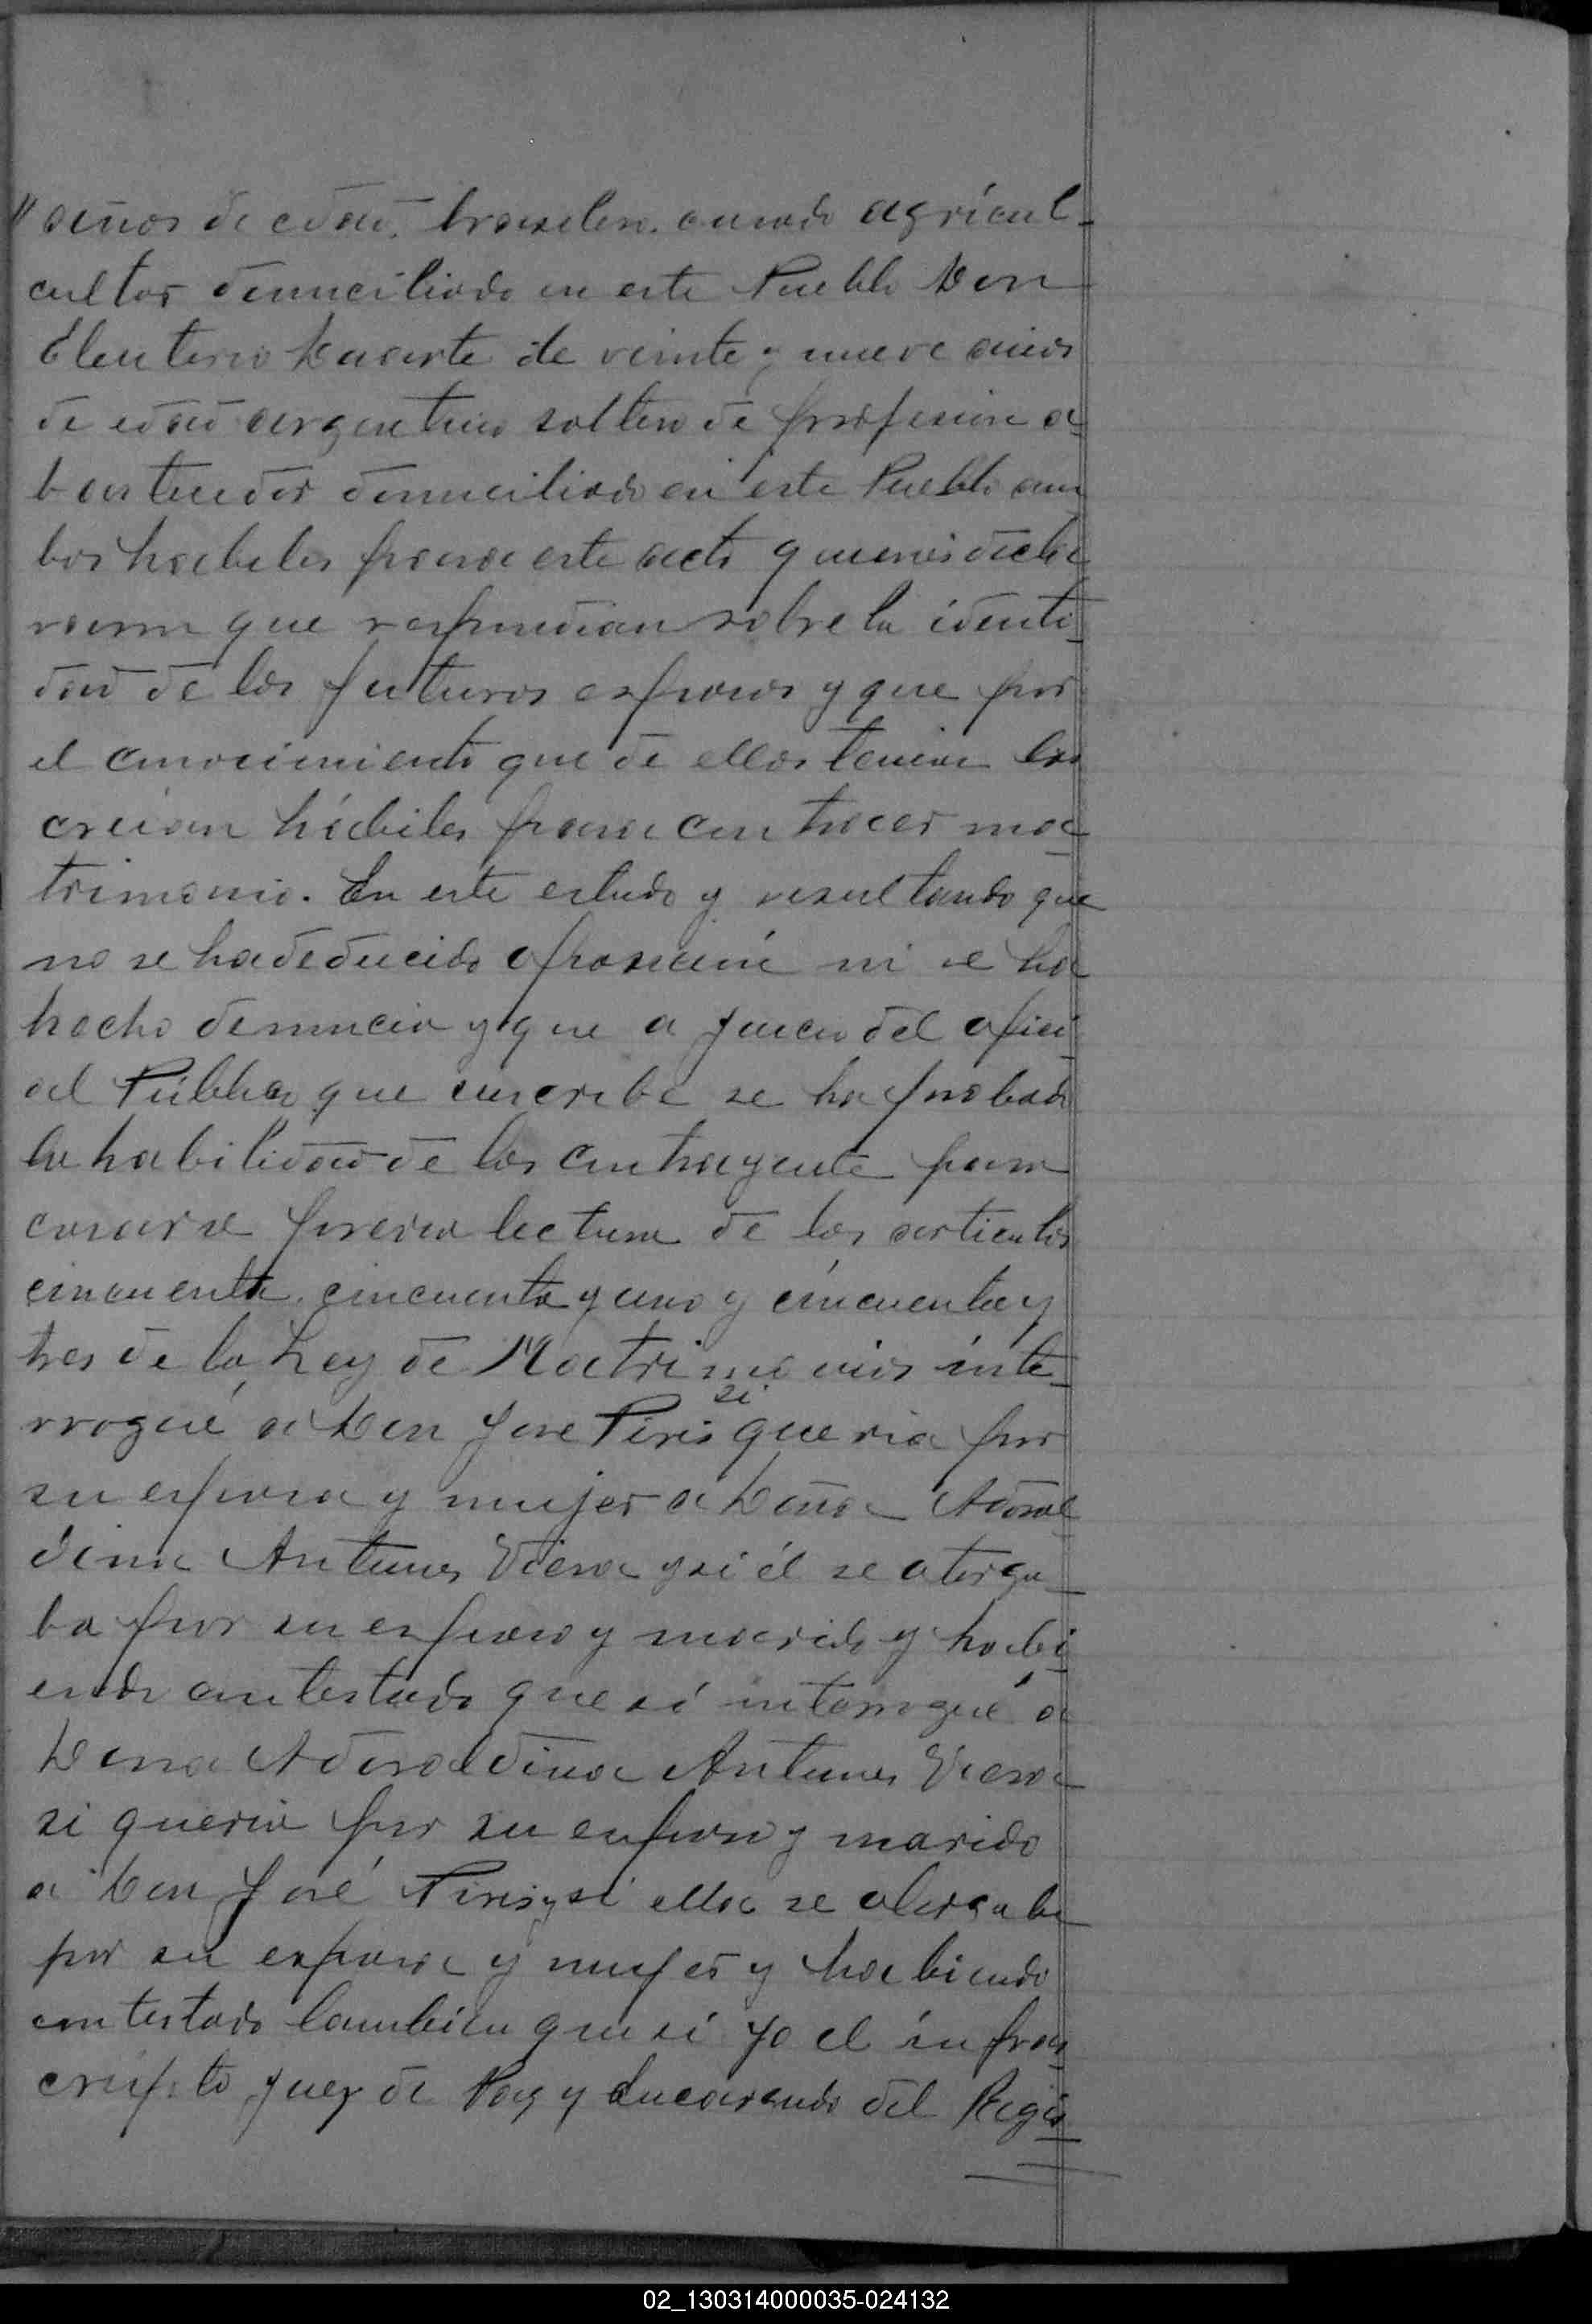 "años de edad, brasilero casado agricul-
cultor domiciliado en este Pueblo Don
Eleuterio Duarte de veinte y nueve años
de edad argentino soltero de profesion a-
bastecedor domiciliado en este Pueblo am
bos habeles para este acto quienes decla
raron que respondian sobre la identi-
dad de los futuros esposos y que por
el conocimiento que de ellos tenian los
creian hábiles para contraer ma-
trimonio. En este estado y resultando que
no se ha deducido oposición ni se ha
hecho denuncia y que a juicio del ofici-
al Público que suscribe se ha probado
la habilidad de los contrayente para
casarse previa lectura de los articulos
cincuenta, cincuenta y uno y cincuenta y
tres de la Ley de Matrimonios inte-
rrogué a Don Jose Piris si queria por
su esposa y mujer a Doña Adoral
dina Antunes Viera y si él se otorga-
ba por su esposo y marido y habi-
endo contestado que sí interrogué a
Dona Adoraldina Antunes Viera
si queria por su esposo y marido
a Don José Piris y si ella se otorgaba
por su esposa y mujer y habiendo
contestado tambien que sí yo el infras-
cripto Juez de Paz y Encargado del Regis